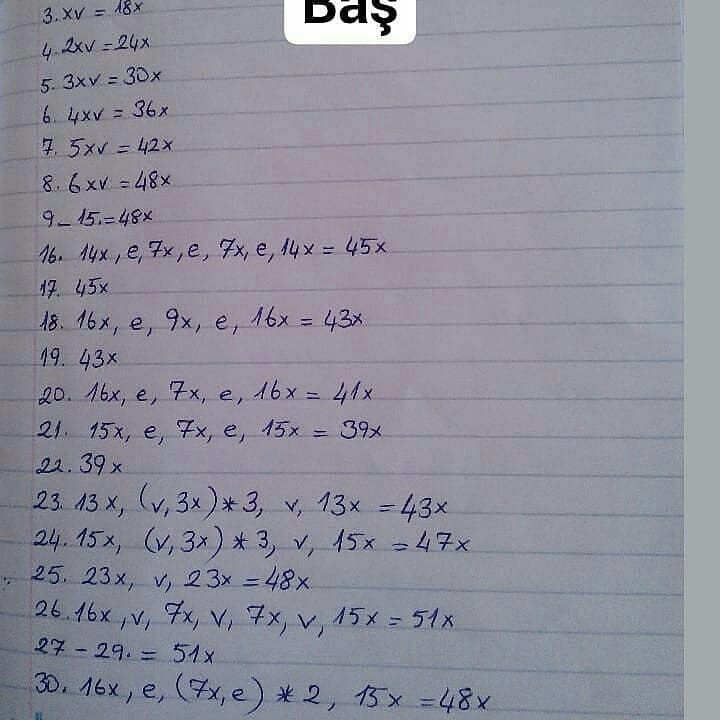 Baş
3. xv = 18x
4. 2xv = 24x
5. 3xv = 30x
6. 4xv = 36x
7. 5xv = 42x
8. 6xv = 48x
9_ 15. = 48x
16. 14x, e, 7x, e, 7x, e, 14x = 45x
17. 45x
18. 16x, e, 9x, e, 16x = 43x
19. 43x
20. 16x, e, 7x, e, 16x = 41x
21. 15x, e, 7x, e, 15x = 39x
22. 39x
23. 13x, (v, 3x) * 3, v, 13x = 43x
24. 15x, (v, 3x) * 3, v, 15x = 47x
25. 23x, v, 23x = 48x
26. 16x, v, 7x, v, 7x, v, 15x = 51x
27 - 29. = 51x
30. 16x, e, (7x, e) * 2, 15x = 48x